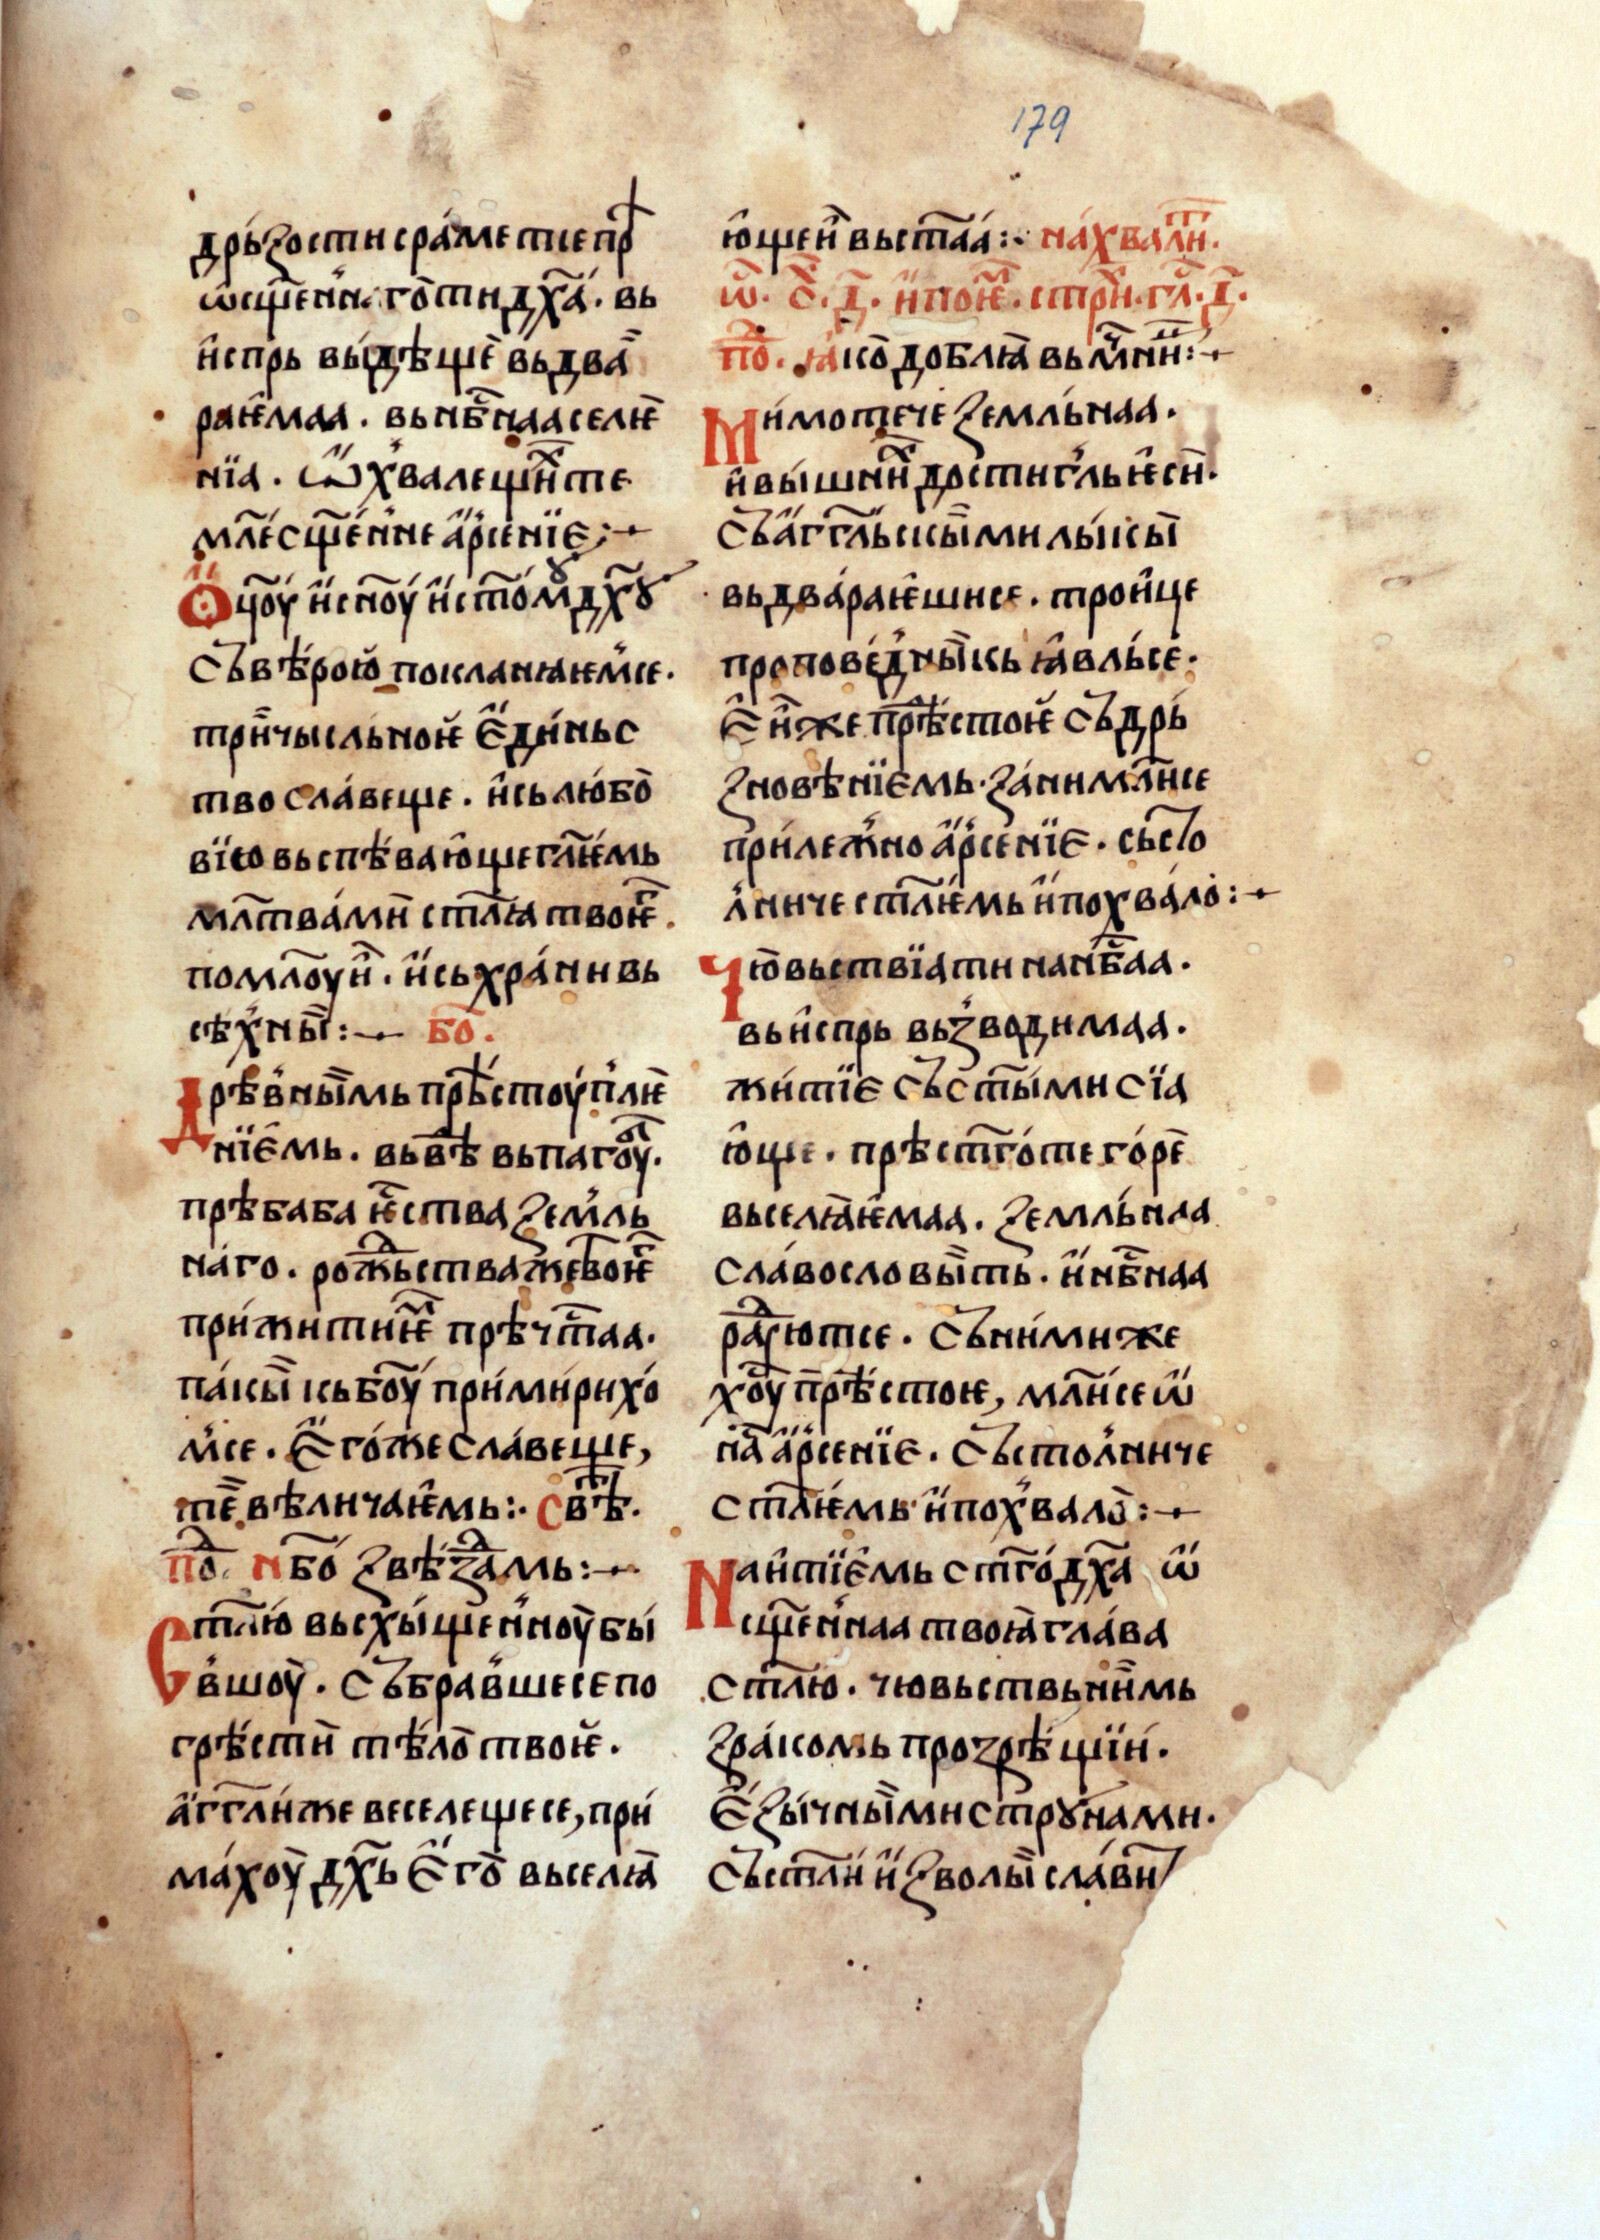 179
дрь́зости сра́мѥт се пр҇
ѡсщ҃ен́на го̀ти дх҃а́. вь
и҆спрь вы́дѣщѐ вьдва̑
раѥ҆маа. вь нб҃наа селѥ̀
нїа. Ѿ х҆валещи̏х те
мл҃е́ сщ҃е́н́не а҆́рсенїе :~
Ѻ҆ц҃оу́ и҆ сн҃оу́ и҆ ст҃о́мꙋ дх҃ꙋ
съ вѣ́рою̀ покланꙗѥм́се.
три̏чысльноѥ̀ е҆ди́ньс
тво сла́веще. и҆ сь лю́бо̀
вїю вьспѣва́ю҆ще гл҃ѥ́мь
мл҃тва́ми̏ ст҃лꙗ твоѥ̏г.
помл҃оу́и̑. и҆ сьхра́ни вь
сѣх́ ны̏ :~ бо҃.
Дрѣв́ны̏мь прѣ́стоу́п́лѥ̀
нїе҆мь. вь в҃ѣ вьпа го̑у́.
прѣбаба ѥ҆́ства зем́ль
на́го. рож̑ьства же твоѥ̏г
при́житиѥ̏м прѣч҃таа.
па́кы̏ кь бо҃у́ при́мири́хо́
м́се. Е҆го́же сла́веще,
те̏ вѣличаѥ҆мь :· свѣ҃т.
по҃д. нб҃о́ звѣ́з̑амь :~
Ст҃лю́ вьсхы́щен́ноу̀ бы́
в́шоу̀. събрав́шесе по
грѣ́сти̏ тѣ́ло̀ твоѥ̀.
а҆́гг҃ли́же веселещесе, при́
ма́хоу̀ дх҃ъ е҆го̀ вьселꙗ̀
ю҆щеи̏ вьст҃аа́ :· на́ хвал҃ит.
ѿ. с҃. д҃. и҆ поѥ̏м. стр҃и. гл҃. д҃.
по҃д. ꙗ҆ко̀ доблꙗ̀ вь м҃чни̏ :~
Ми́мотече земль́наа.
и҆ вы́шни̏х достиѓль ѥ҆си̏.
Съ а҆́гг҃льскы̏ми лы́кы̏
вьдва́раѥ҆шисе. трои҆це
проповѣ́д́ны̏кь ꙗ҆вль́се́.
Е҆и̏же прѣ́стоѥ̀ съ дрь́
зновѣнїе́мь. за́ни мл҃и́се
при́леж́но а҆́рсенїе. сьсто
л́ниче ст҃лѥ́мь и҆ похва́ло̀ :~
Чю̀вьствїа ти на нб҃́наа.
вь и҆спрь вьз́водимаа.
жи́тїе съ ст҃ы́ми сїа
ю҆ще. прѣст҃го́те го́рѐ
вьселꙗ̀ѥ҆маа. земль́наа
сла́вословы̏ть. и҆ нб҃наа
ра̑д́ютсе. съ ни́миже
хо҃у́ прѣ́стоѥ, мл҃и́се ѿ
на̑ а҆́рсенїе. състол́ниче
ст҃лѥ́мь и҆ пох́вало̀ :~
Наи҆тїе҆мь ст҃го́ дх҃а ѿ
сщ҃ен́наа твоꙗ̀ гла́ва
ст҃лю. чювьствьни̏мь
зра́комь прозрѣ́щїи́.
Е҆зы́чны̏ми стрꙋ́нами.
Съ ст҃ли́ и҆зволы̏ сла́вит̑